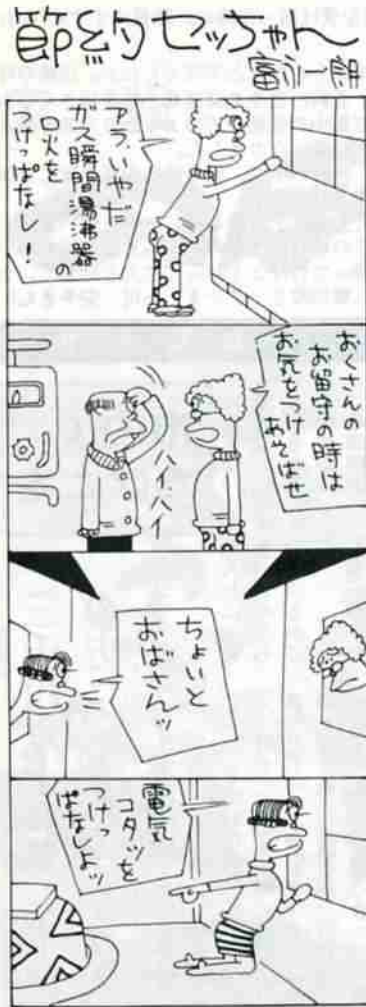 節約セッちゃん
富永一朗
アラ、いやだ
ガス瞬間湯沸器の
口火を
つけっぱなし!
おくさんの
お留守の時は
お気をつけ
あそばせ
ハイハイ
ちょいと
おばさんッ
電気
コタツを
つけっ
ぱなしよッ